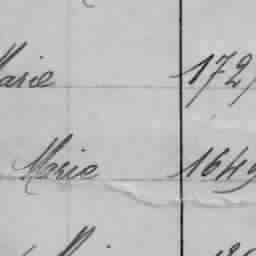 Marie 172
Marie 1649